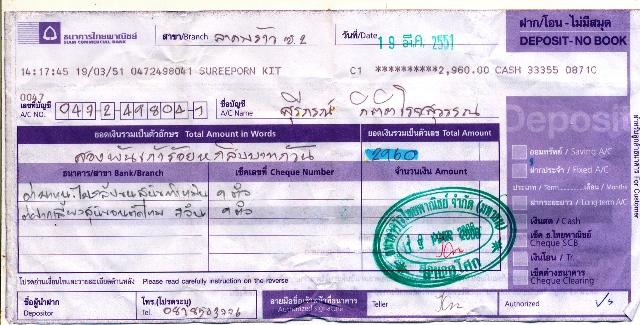 ธนาคารไทยพาณิชย์
SIAM COMMERCIAL BANK
สาขา/Branch ลาดพร้าว
วันที่/Date 19 มี.ค. 2551
ฝาก/โอน - ไม่มีสมุด
DEPOSIT - NO BOOK
14:17:45 19/03/51 0472498041 SUREEPORN KIT C1 **********2,960.00 CASH 33355 0871C
0047
เลขที่บัญชี A/C NO. 047-2-49804-1
ชื่อบัญชี A/C Name สุรีภรณ์
ยอดเงินรวมเป็นตัวอักษร Total Amount in Words
ยอดเงินรวมเป็นตัวเลข Total Amount
สองพันเก้าร้อยหกสิบบาทถ้วน
2960
ธนาคาร/สาขา Bank/Branch
เช็คเลขที่ Cheque Number
จำนวนเงิน Amount
Deposit
ออมทรัพย์ / Saving A/C
ฝากประจำ / Fixed A/C
ประเภท / Term เดือน / Months
ฝากระยะยาว / Long term A/C
เงินสด / Cash
เช็ค ธ.ไทยพาณิชย์
Cheque SCB
เงินโอน / Tr.
เช็คต่างธนาคาร
Cheque Clearing
สำหรับลูกค้า For Customer
โปรดอ่านเงื่อนไขและรายละเอียดด้านหลัง Please read carefully instruction on the reverse
ชื่อผู้นำฝาก
Depositor
โทร.(โปรดระบุ)
Tel.
ลายมือชื่อเจ้าหน้าที่ธนาคาร
Authorized signature
Teller
Authorized